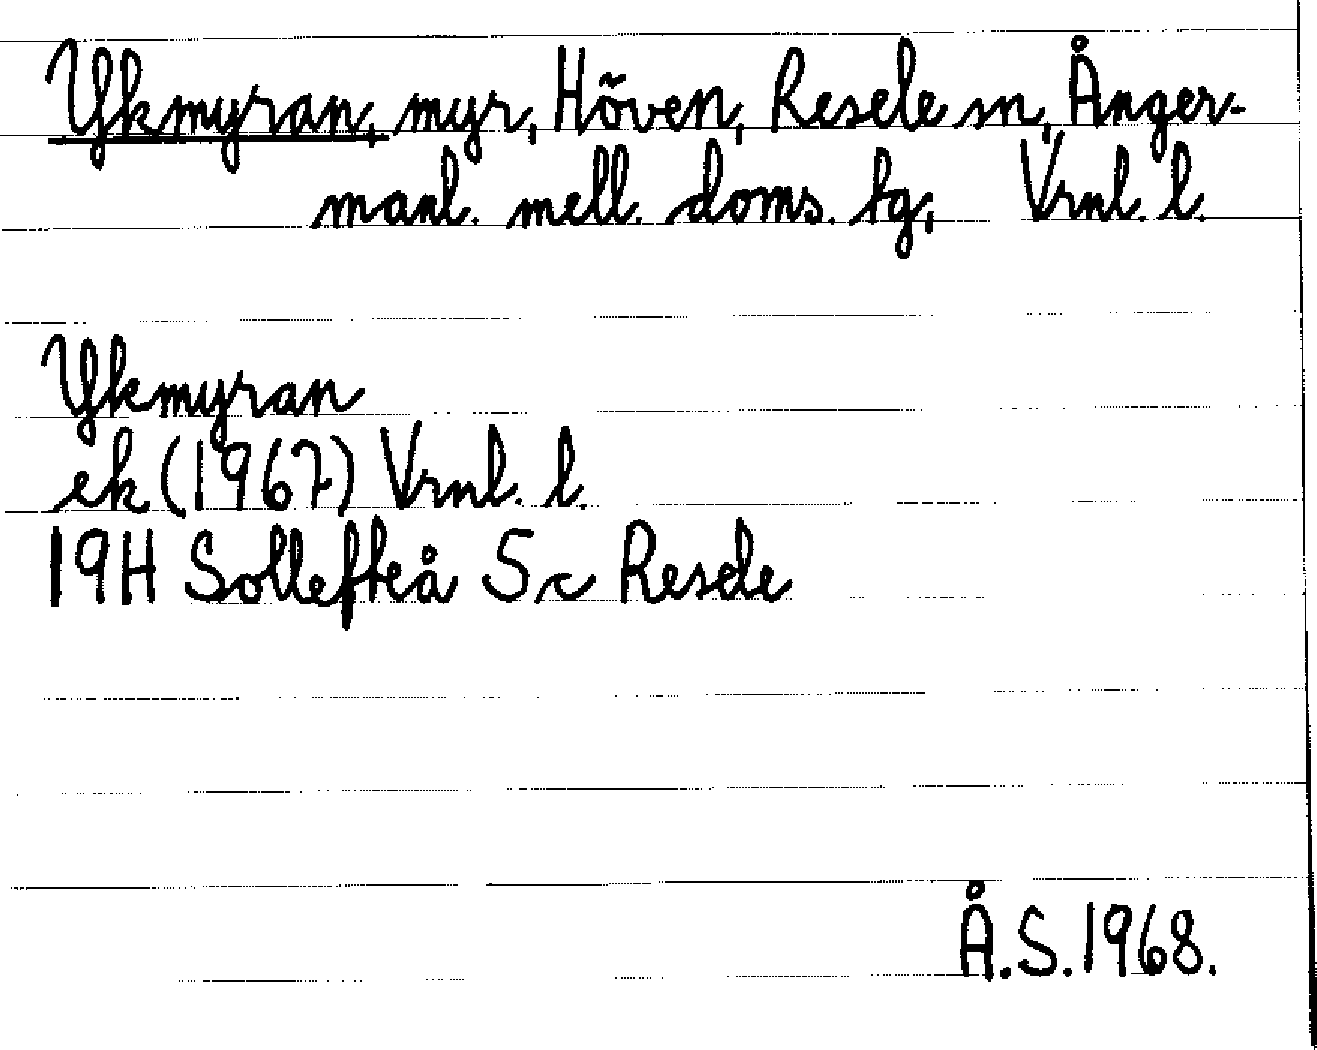 Ykmyran, myr, Höven, Resele sn, Ånger-
manl. mell. doms. tg, Vrnl. l.
Ykmyran
ek (1967) Vrnl. l.
19H Sollefteå 5c Resele
Å.S. 1968.